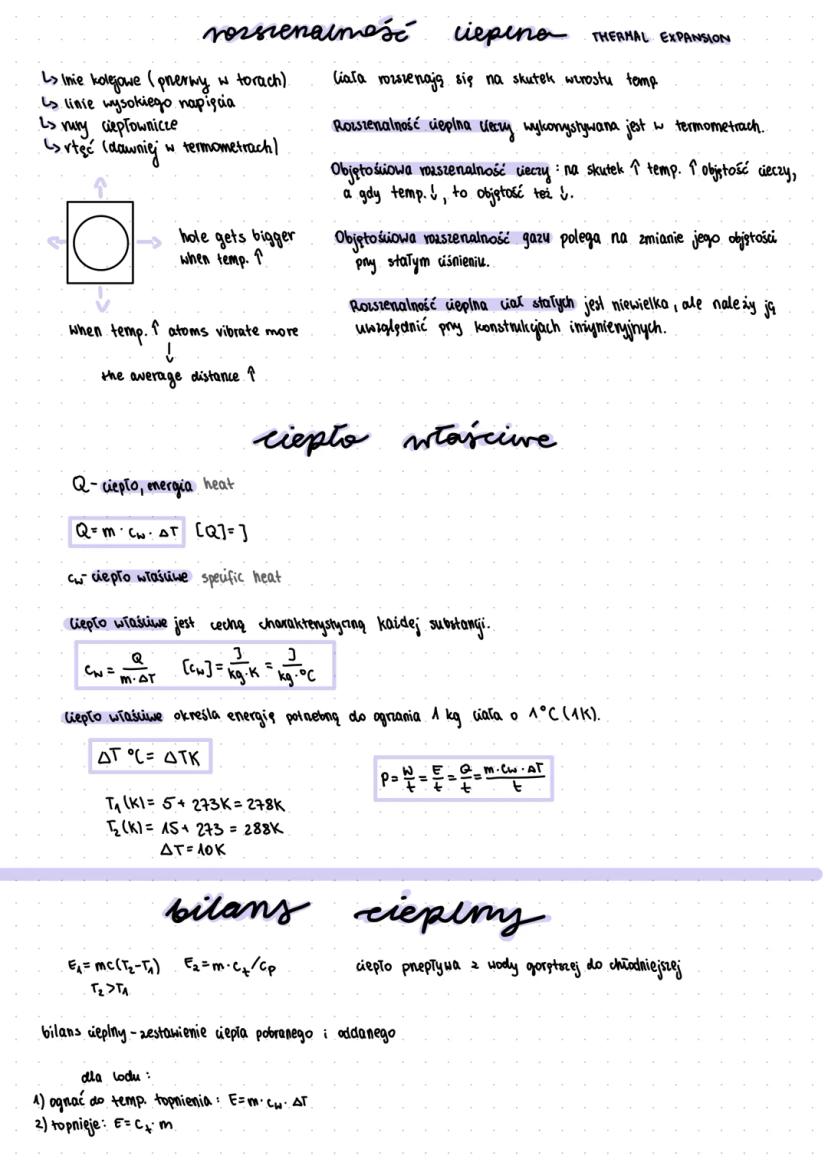 rozszerzalność cieplna THERMAL EXPANSION
↳ linie kolejowe (przerwy w torach)
↳ linie wysokiego napięcia
↳ rury ciepłownicze
↳ rtęć (dawniej w termometrach)
hole gets bigger
when temp. ↑
when temp. ↑ atoms vibrate more
↓
the average distance ↑
ciała rozszerzają się na skutek wzrostu temp
Rozszerzalność cieplna cieczy wykorzystywana jest w termometrach.
Objętościowa rozszerzalność cieczy : na skutek ↑ temp. ↑ objętość cieczy,
a gdy temp. ↓, to objętość też ↓.
Objętościowa rozszerzalność gazu polega na zmianie jego objętości
przy stałym ciśnieniu.
Rozszerzalność cieplna ciał stałych jest niewielka, ale należy ją
uwzględnić przy konstrukcjach inżynieryjnych.
ciepło właściwe
Q - ciepło, energia heat
Q = m · cw · ΔT [Q] = J
cw - ciepło właściwe specific heat
ciepło właściwe jest cechą charakterystyczną każdej substancji.
cw = Q / m · ΔT [cw] = J / kg · K = J / kg · °C
ciepło właściwe określa energię potrzebną do ogrzania 1 kg ciała o 1°C (1K).
ΔT °C = ΔTK
P = W/t = E/t = Q/t = m · cw · ΔT / t
T₁ (K) = 5 + 273K = 278K
T₂ (K) = 15 + 273 = 288K
ΔT = 10K
bilans cieplny
E₁ = mc(T₂ - T₁) E₂ = m · ct / cp
T₂ > T₁
ciepło przepływa z wody gorętszej do chłodniejszej
bilans cieplny - zestawienie ciepła pobranego i oddanego
dla lodu :
1) ogrzać do temp. topnienia : E = m · cw · ΔT
2) topnieje : E = ct · m